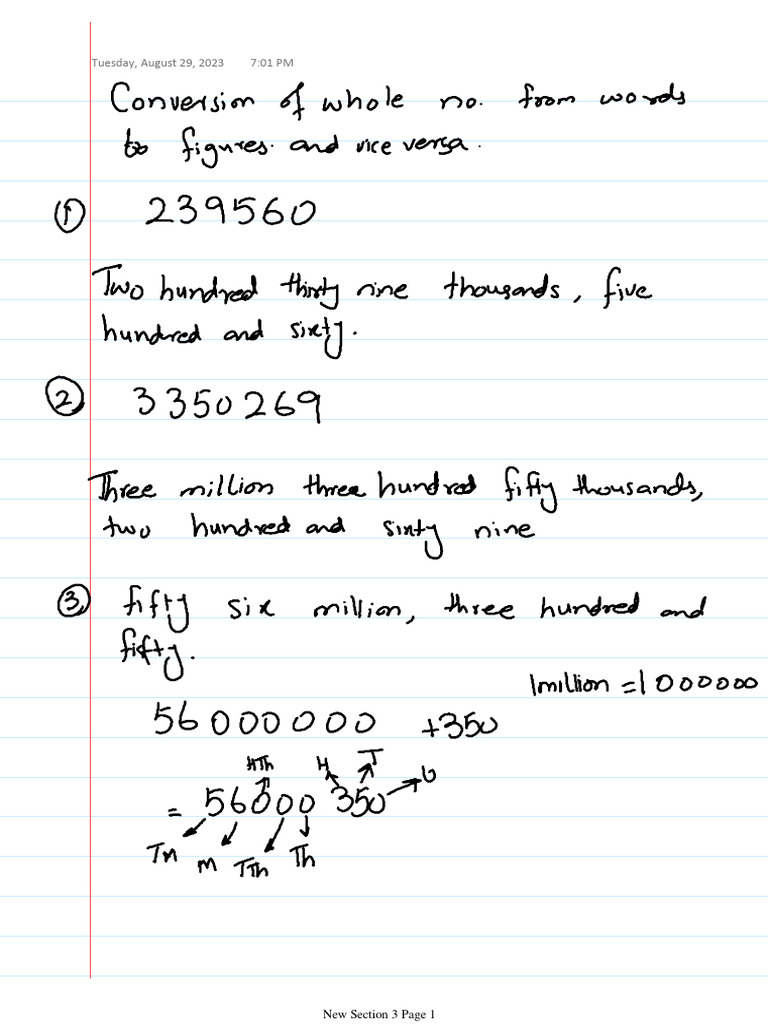 Tuesday, August 29, 2023 7:01 PM
Conversion of whole no. from words
to figures. and vice versa.
① 239560
Two hundred thirty nine thousands, five
hundred and sixty.
② 3350269
Three million three hundred fifty thousands,
two hundred and sixty nine
③ fifty six million, three hundred and
fifty.
1million = 1 000000
56000000 +350
HTh H T
= 56000 350 U
Tm m TTh Th
New Section 3 Page 1